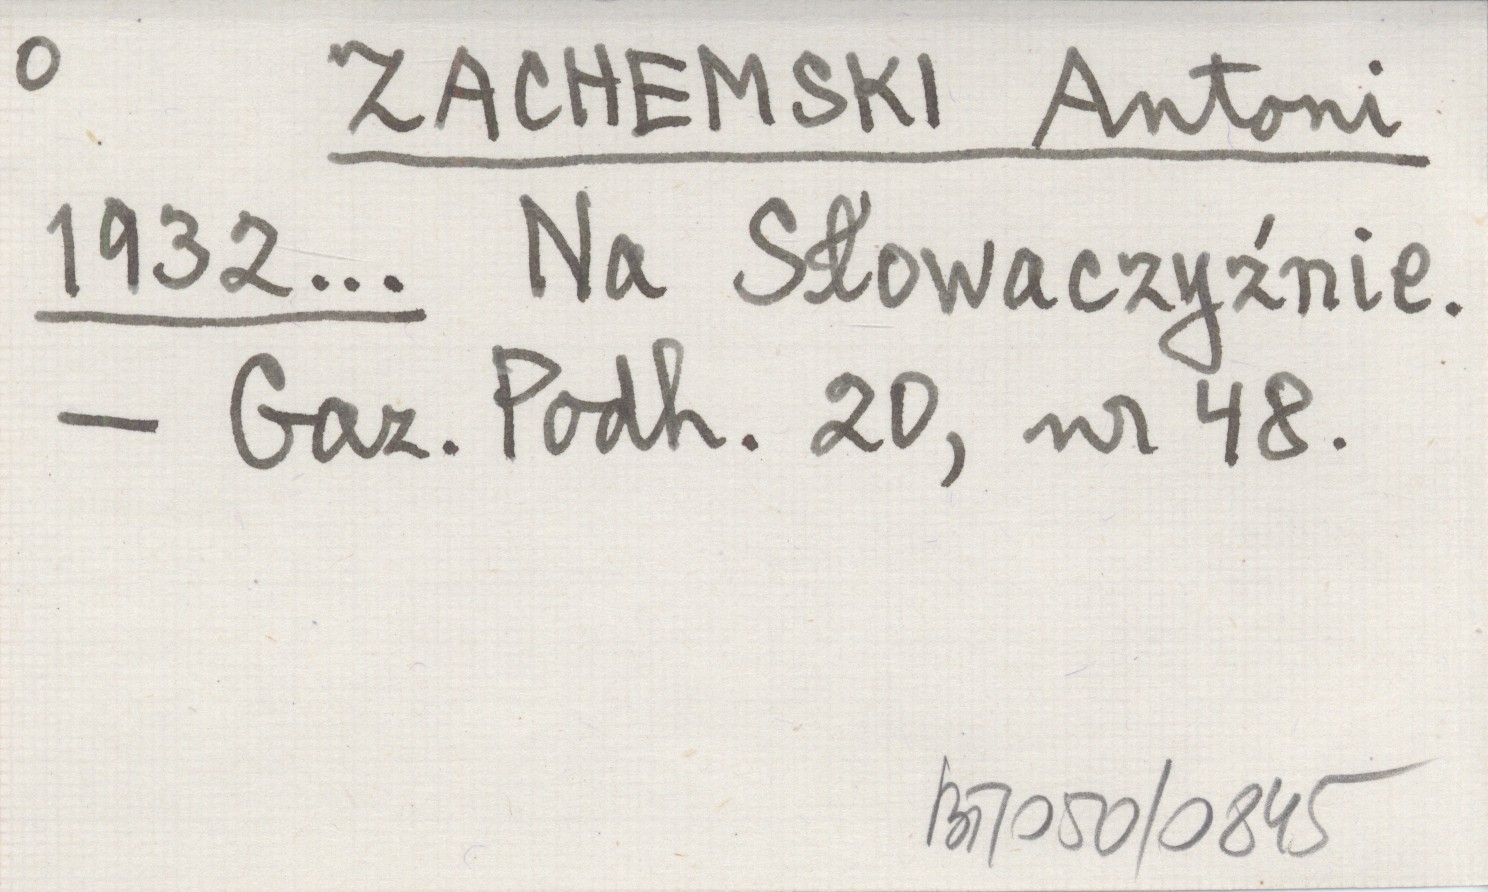 o ZACHEMSKI Antoni
1932... Na Słowaczyźnie.
— Gaz. Podh. 20, nr 48.
BT/050/0845